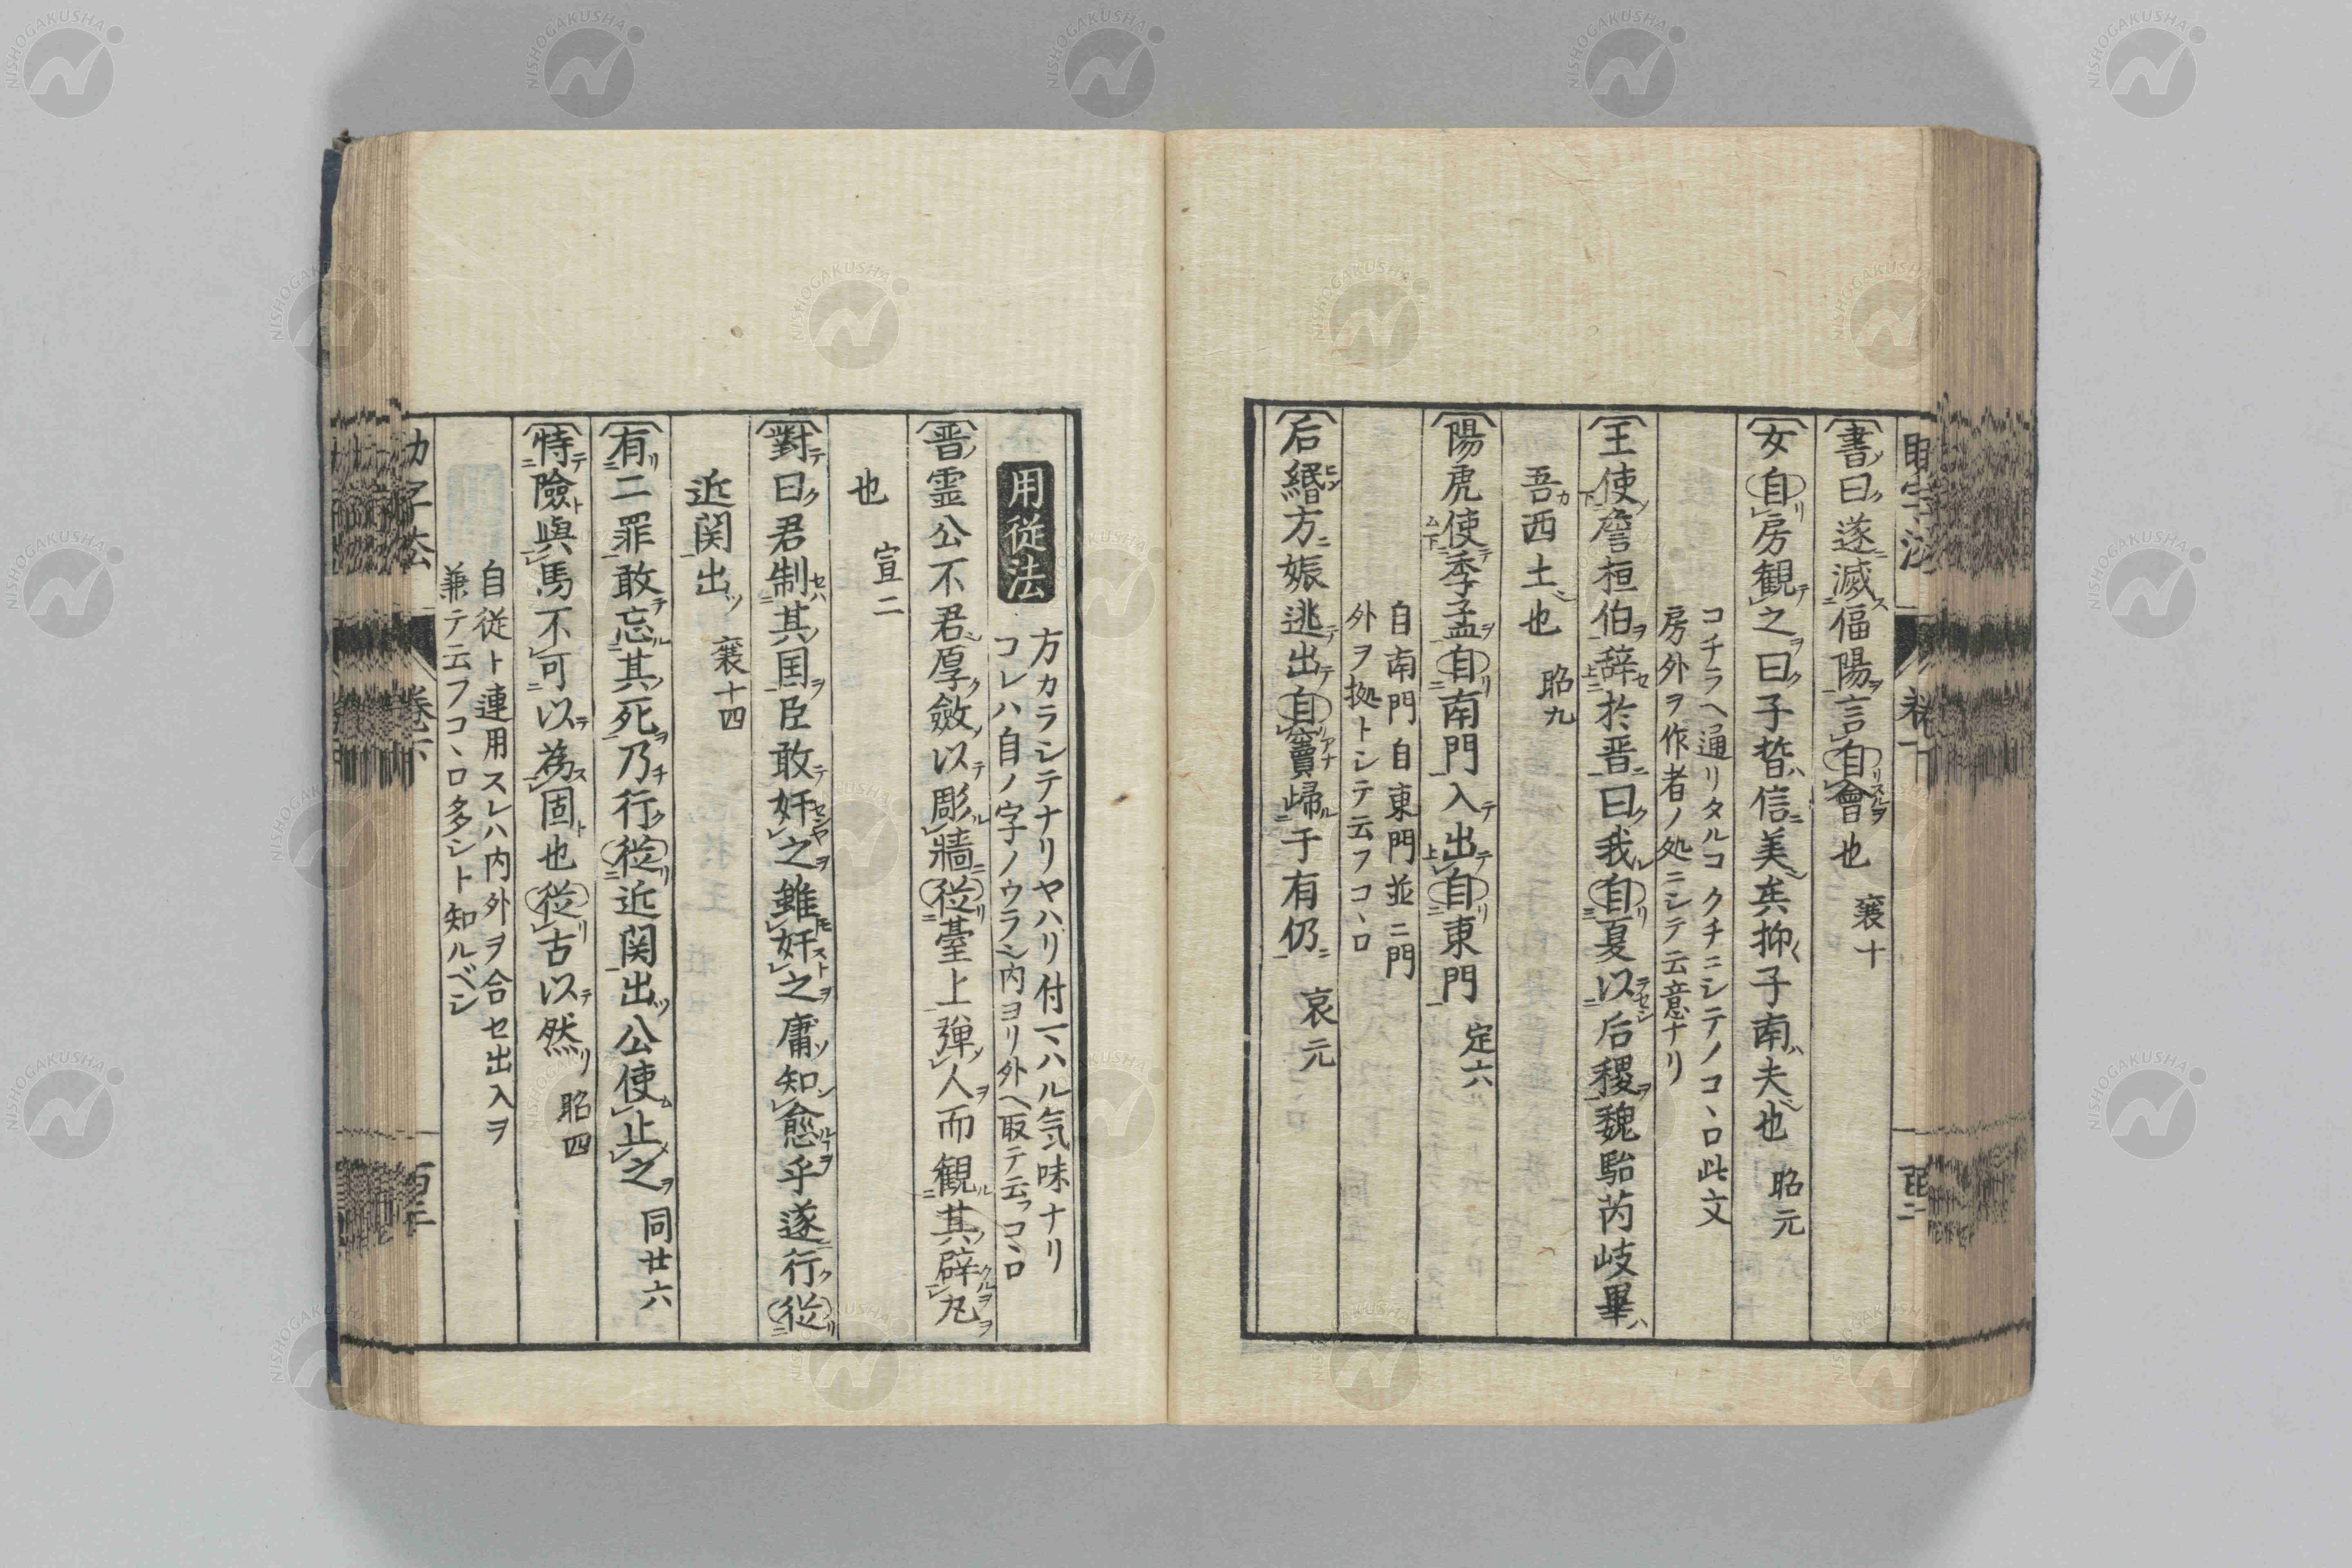 書曰遂滅偪陽言自會也 襄十
女自房観之曰子晳信美矣抑子南夫也 昭元
コチラヘ通リタルコクチニシテノコヽロ此文
房外ヲ作者ノ処ニシテ云意ナリ
王使詹桓伯辞於晋曰我自夏以后稷魏駘芮岐畢
吾西土也 昭九
陽虎使季孟自南門入出自東門 定六
自南門自東門並ニ門
外ヲ拠トシテ云フコヽロ
后緡方娠逃出自竇歸于有仍 哀元
用従法
方カラシテナリヤハリ付マハル気味ナリ
コレハ自ノ字ノウラシ内ヨリ外ヘ取テ云フコヽロ
晋霊公不君厚斂以彫牆従臺上弾人而観其辟丸
也 宣二
對曰君制其国臣敢奸之雖奸之庸知愈乎遂行従
近関出 襄十四
有二罪敢忘其死乃行従近関出公使止之 同廿六
恃險與馬不可以為固也従古以然 昭四
自従ト連用スレハ内外ヲ合セ出入ヲ
兼テ云フコヽロ多シト知ルベシ